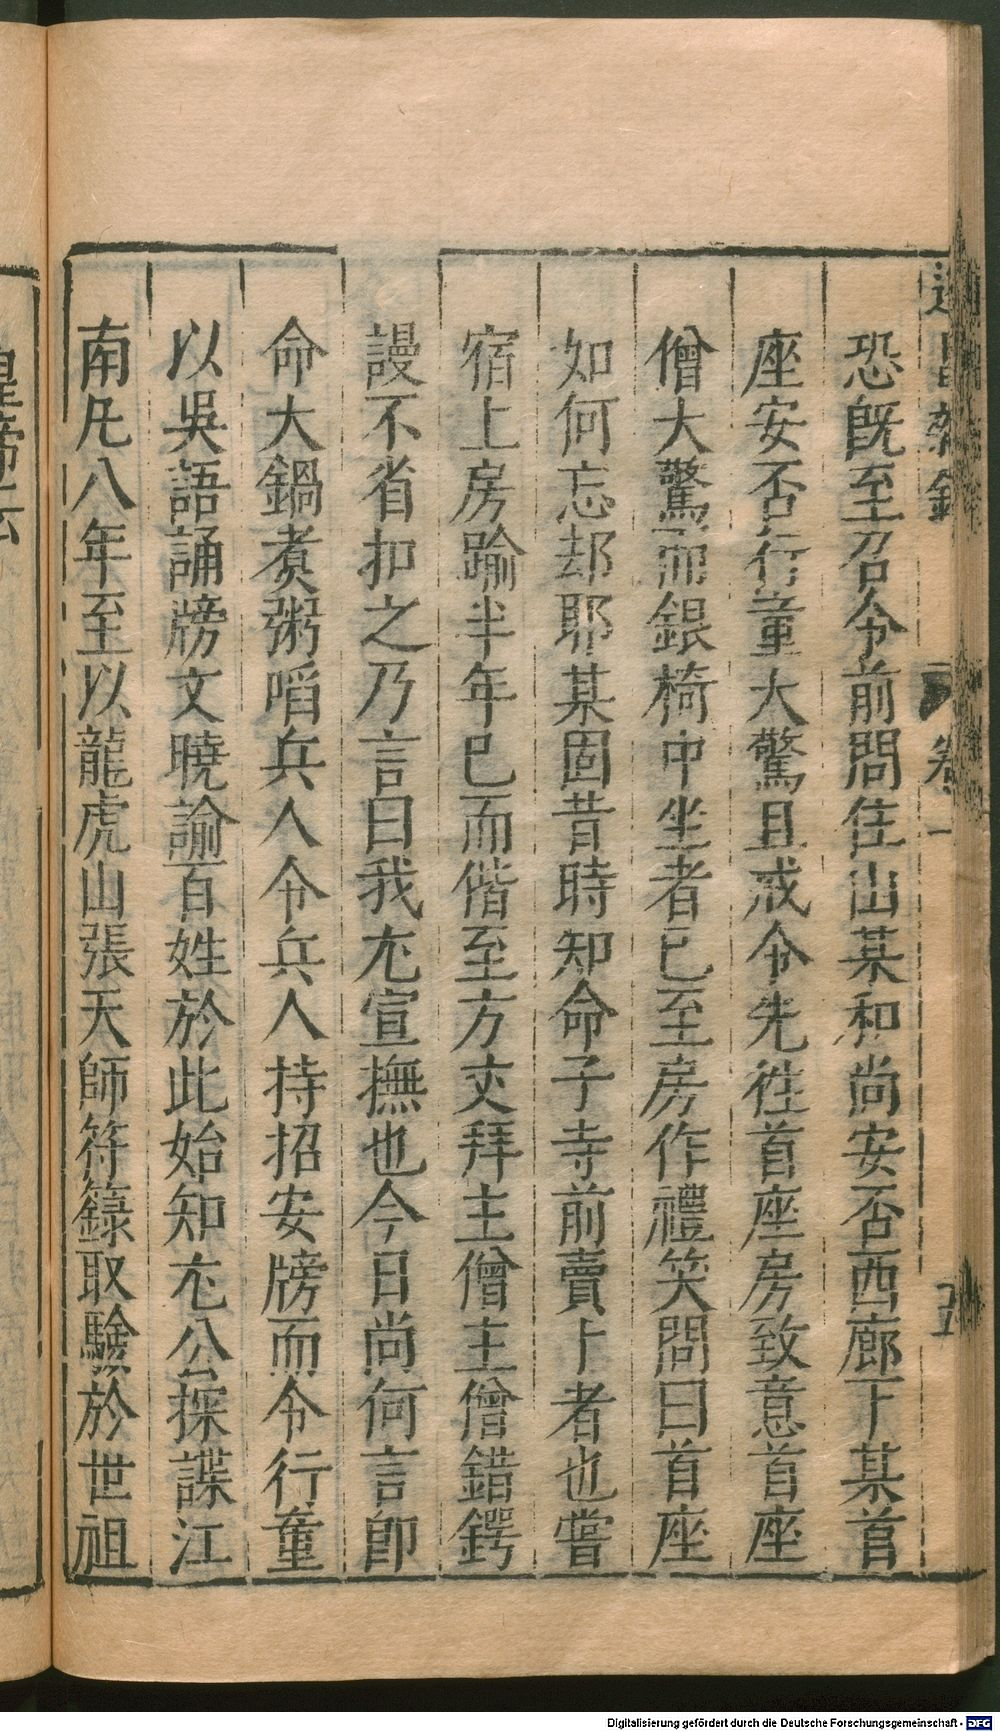 遂昌雜錄
卷一
五
恐旣至召令前問住山某和尚安否西廊下某首
座安否行童大驚且戒令先徃首座房致意首座
僧大驚而銀椅中坐者已至房作禮笑問曰首座
如何忘却耶某固昔時知命子寺前賣卜者也嘗
宿上房踰半年已而偕至方丈拜主僧主僧錯鍔
謾不省扣之乃言曰我尢宣撫也今日尚何言卽
命大鍋煑粥啗兵人令兵人持招安牓而令行童
以吳語誦牓文曉諭百姓於此始知尢公探諜江
南凡八年至以龍虎山張天師符籙取驗於世祖
皇帝云
Digitalisierung gefördert durch die Deutsche Forschungsgemeinschaft - DFG